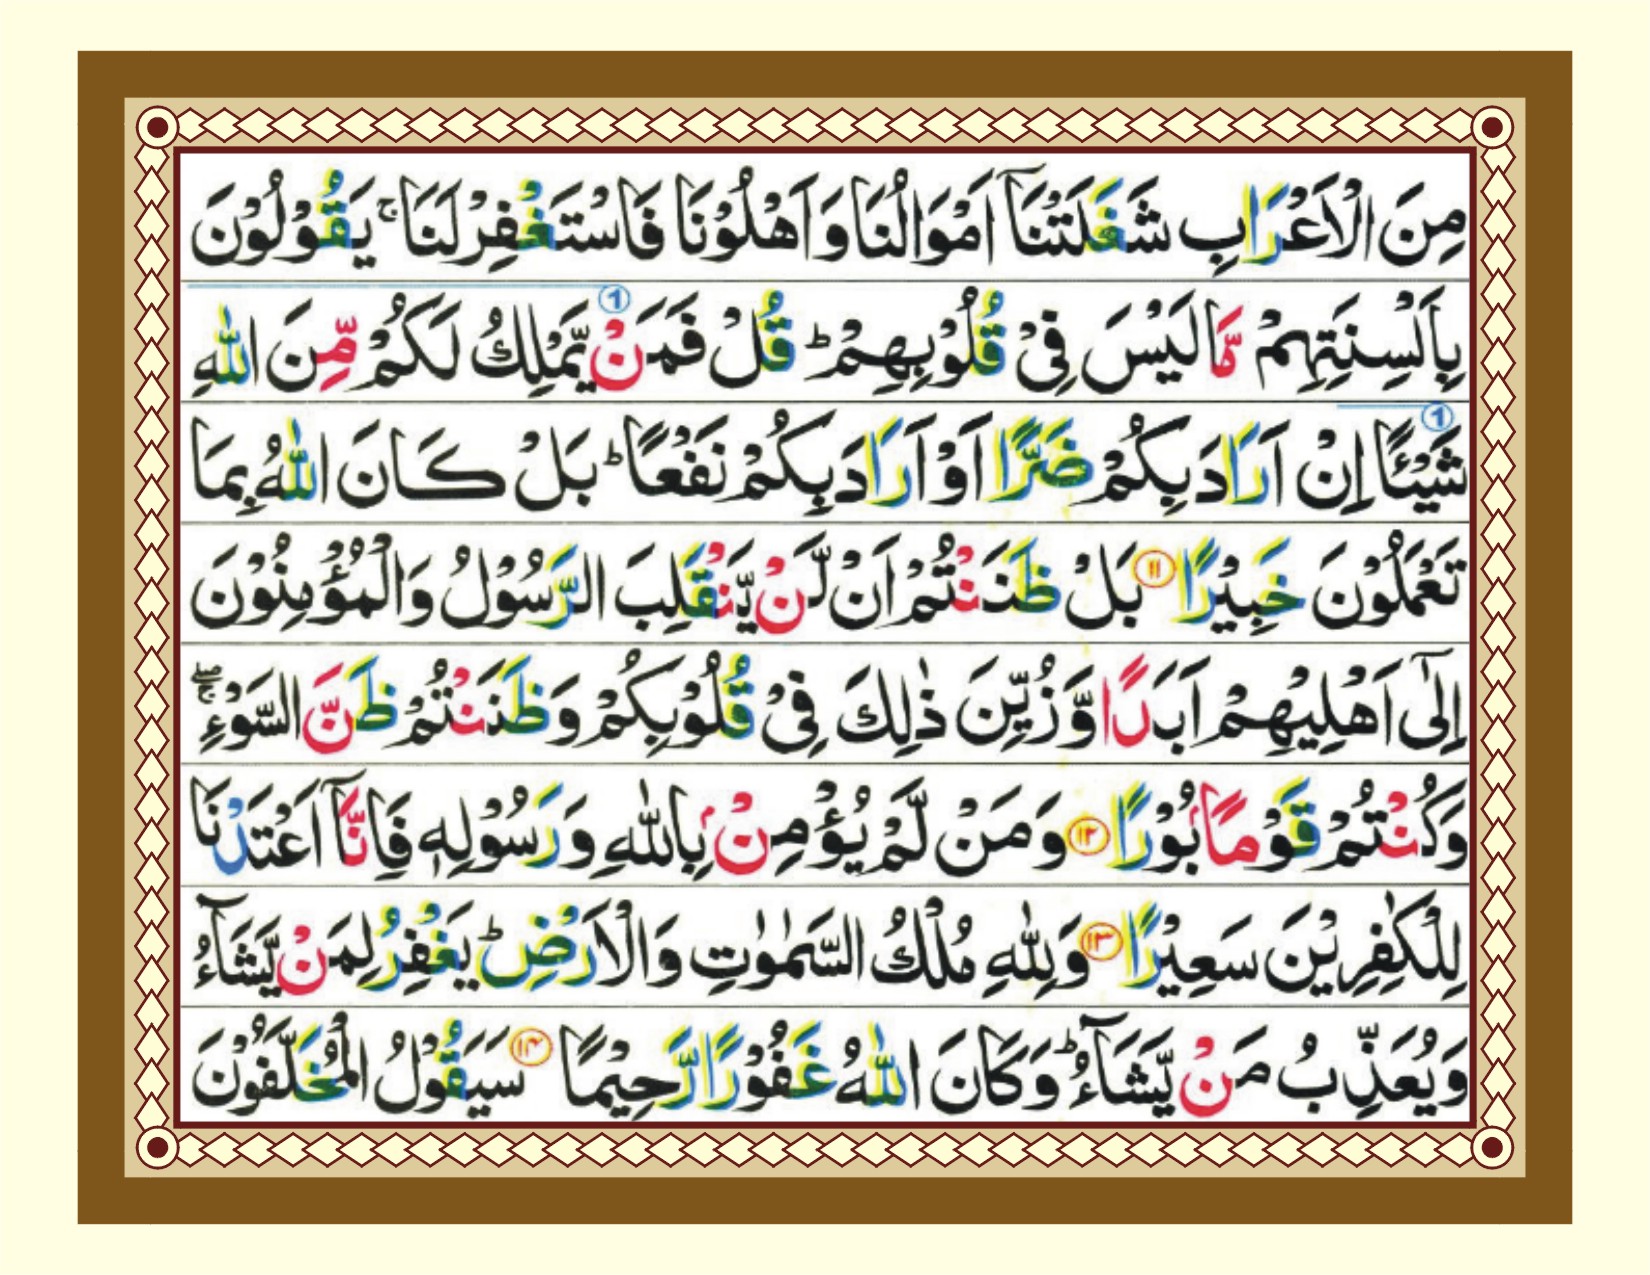 مِنَ الْاَعْرَابِ شَغَلَتْنَاۤ اَمْوَالُنَا وَاَهْلُوْنَا فَاسْتَغْفِرْلَنَا ۚ يَقُوْلُوْنَ
بِاَلْسِنَتِهِمْ مَّا لَيْسَ فِىْ قُلُوْبِهِمْ ؕ قُلْ فَمَنْ يَّمْلِكُ لَكُمْ مِّنَ اللّٰهِ
شَيْئًا اِنْ اَرَادَ بِكُمْ ضَرًّا اَوْ اَرَادَ بِكُمْ نَفْعًا ؕ بَلْ كَانَ اللّٰهُ بِمَا
تَعْمَلُوْنَ خَبِيْرًا ۝۱۱ بَلْ ظَنَنْتُمْ اَنْ لَّنْ يَّنْقَلِبَ الرَّسُوْلُ وَالْمُؤْمِنُوْنَ
اِلٰٓى اَهْلِيْهِمْ اَبَدًا وَّزُيِّنَ ذٰلِكَ فِىْ قُلُوْبِكُمْ وَظَنَنْتُمْ ظَنَّ السَّوْءِ ۚۖ
وَكُنْتُمْ قَوْمًاۢ بُوْرًا ۝۱۲ وَمَنْ لَّمْ يُؤْمِنْۢ بِاللّٰهِ وَرَسُوْلِهٖ فَاِنَّاۤ اَعْتَدْنَا
لِلْكٰفِرِيْنَ سَعِيْرًا ۝۱۳ وَلِلّٰهِ مُلْكُ السَّمٰوٰتِ وَالْاَرْضِ ؕ يَغْفِرُ لِمَنْ يَّشَآءُ
وَيُعَذِّبُ مَنْ يَّشَآءُ ؕ وَكَانَ اللّٰهُ غَفُوْرًا رَّحِيْمًا ۝۱۴ سَيَقُوْلُ الْمُخَلَّفُوْنَ